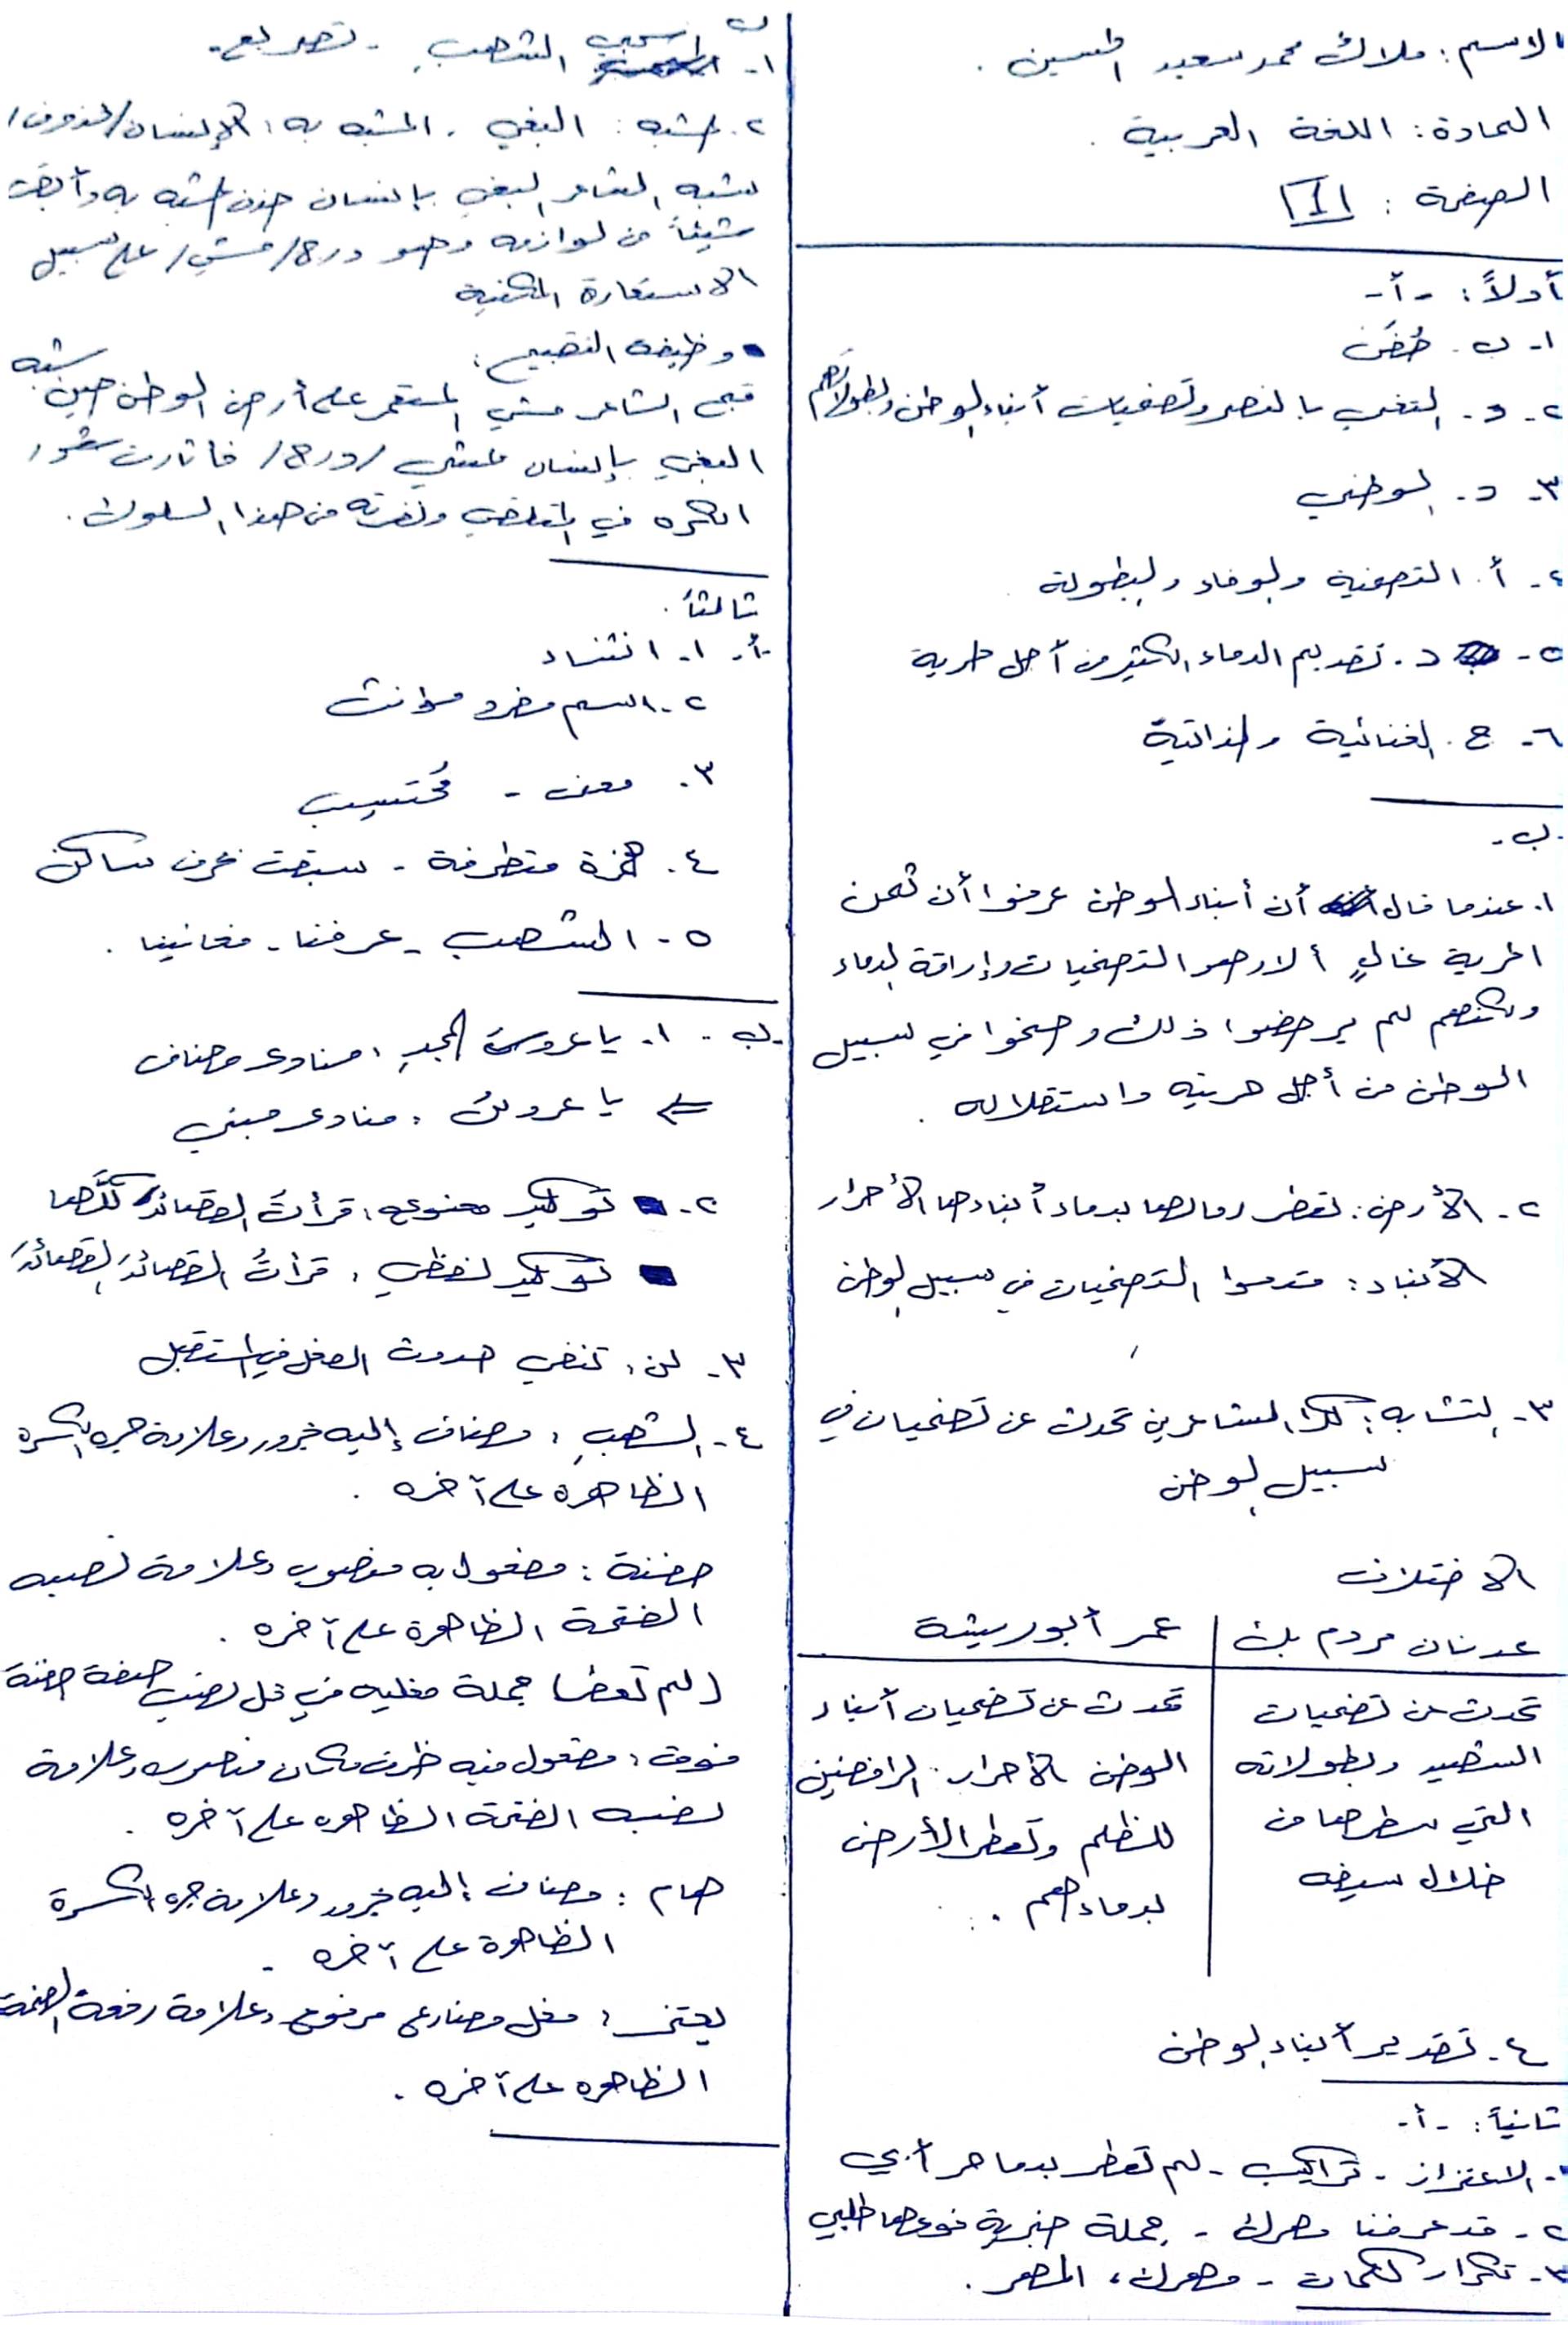 الاسم: ملاك محمد سعيد الحسين.
المادة: اللغة العربية.
الصفحة: 1
أولاً: -أ-
١- ب. خُضَن
٢- د. التغني بالنصر وتضحيات أبناء الوطن وبطولاتهم
٣- د. الوطني
٤- أ. التضحية والوفاء والبطولة
٥- د. تقديم الدماء الكثير من أجل حرية
٦- ج. الغنائية والذاتية
ب-
١. عندما قال أن أبناء الوطن عرفوا أن ثمن
الحرية غالٍ ألا وهو التضحيات وإراقة الدماء
ولكنهم لم يرفضوا ذلك وضحوا في سبيل
الوطن من أجل حريته واستقلاله.
٢- الأرض: تعطر رمالها بدماء أبناءها الأحرار
الأبناء: قدموا التضحيات في سبيل الوطن
٣- التشابه: كلا الشاعرين تحدث عن تضحيات في
سبيل الوطن
الاختلاف
عدنان مردم بك | عمر أبو ريشة
تحدث عن تضحيات | تحدث عن تضحيات أبناء
الشهيد وبطولاته | الوطن الأحرار الرافضين
التي سطرها من | للظلم وتعطر الأرض
خلال سيفه | بدماءهم.
٤- تقدير أبناء الوطن
ثانياً: -أ-
١- الاعتزاز - تراكيب - لم تعطر بدما حر أبي
٢- قد عرفنا مهرك - جملة خبرية نوعها طلبي
٣- تكرار الكلمات - مهرك، المهر.
ب
١- اسحبي الشهب - تصريع.
٢. المشبه: البغي. المشبه به: الإنسان /محذوف/
شبه الشاعر البغي بإنسان حذف المشبه به وأبقى
شيئاً من لوازمه وهو درج /مشي/ على سبيل
الاستعارة المكنية
وظيفة التقبيح:
قبح الشاعر مشي المستعمر على أرض الوطن حين شبه
البغي بإنسان يمشي /درج/ فأثارت شعور
الكره في المتلقي ونفرته من هذا السلوك.
ثالثاً.
أ- ١- انتشاء
٢- اسم مفرد مؤنث
٣. معف - مُحتسِب
٤. همزة متطرفة - سبقت بحرف ساكن
٥- الشهب - عرفنا - مغانينا.
ب- ١- يا عروسَ المجدِ: منادى مضاف
يا عروسُ: منادى مبني
٢- توكيد معنوي: قرأتُ القصائدَ كلَّها
توكيد لفظي: قرأتُ القصائدَ القصائدَ
٣- لن: تنفي حدوث الفعل في المستقبل
٤- الشهبِ: مضاف إليه مجرور وعلامة جره الكسرة
الظاهرة على آخره.
حفنة: مفعول به منصوب وعلامة نصبه
الفتحة الظاهرة على آخره.
(لم تعطر) جملة فعلية في محل نصب صفة حفنة
فوق: مفعول فيه ظرف مكان منصوب وعلامة
نصبه الفتحة الظاهرة على آخره.
هام: مضاف إليه مجرور وعلامة جره الكسرة
الظاهرة على آخره.
يعتزُ: فعل مضارع مرفوع وعلامة رفعه الضمة
الظاهرة على آخره.